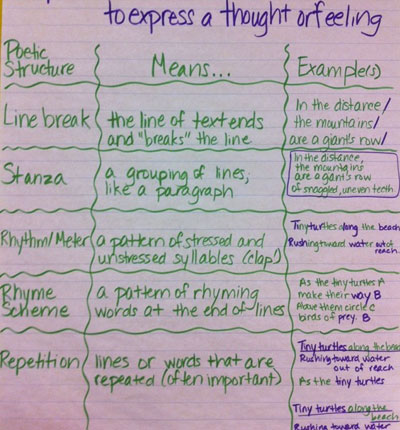 to express a thought or feeling
Poetic
Structure
Means...
Example(s)
Line break
the line of text ends
and "breaks" the line
In the distance/
the mountains/
are a giant's row/
Stanza
a grouping of lines,
like a paragraph
In the distance,
the mountains
are a giant's row
of snaggled, uneven teeth.
Rhythm/Meter
a pattern of stressed and
unstressed syllables (clap!)
Tiny turtles along the beach
Rushing toward water out of
reach.
Rhyme
Scheme
a pattern of rhyming
words at the end of lines
As the tiny turtles A
make their way B
Above them circle C
birds of prey. B
Repetition
lines or words that are
repeated (often important)
Tiny turtles along the beach
Rushing toward water
out of reach
As the tiny turtles
Tiny turtles along the
beach
Rushing toward water